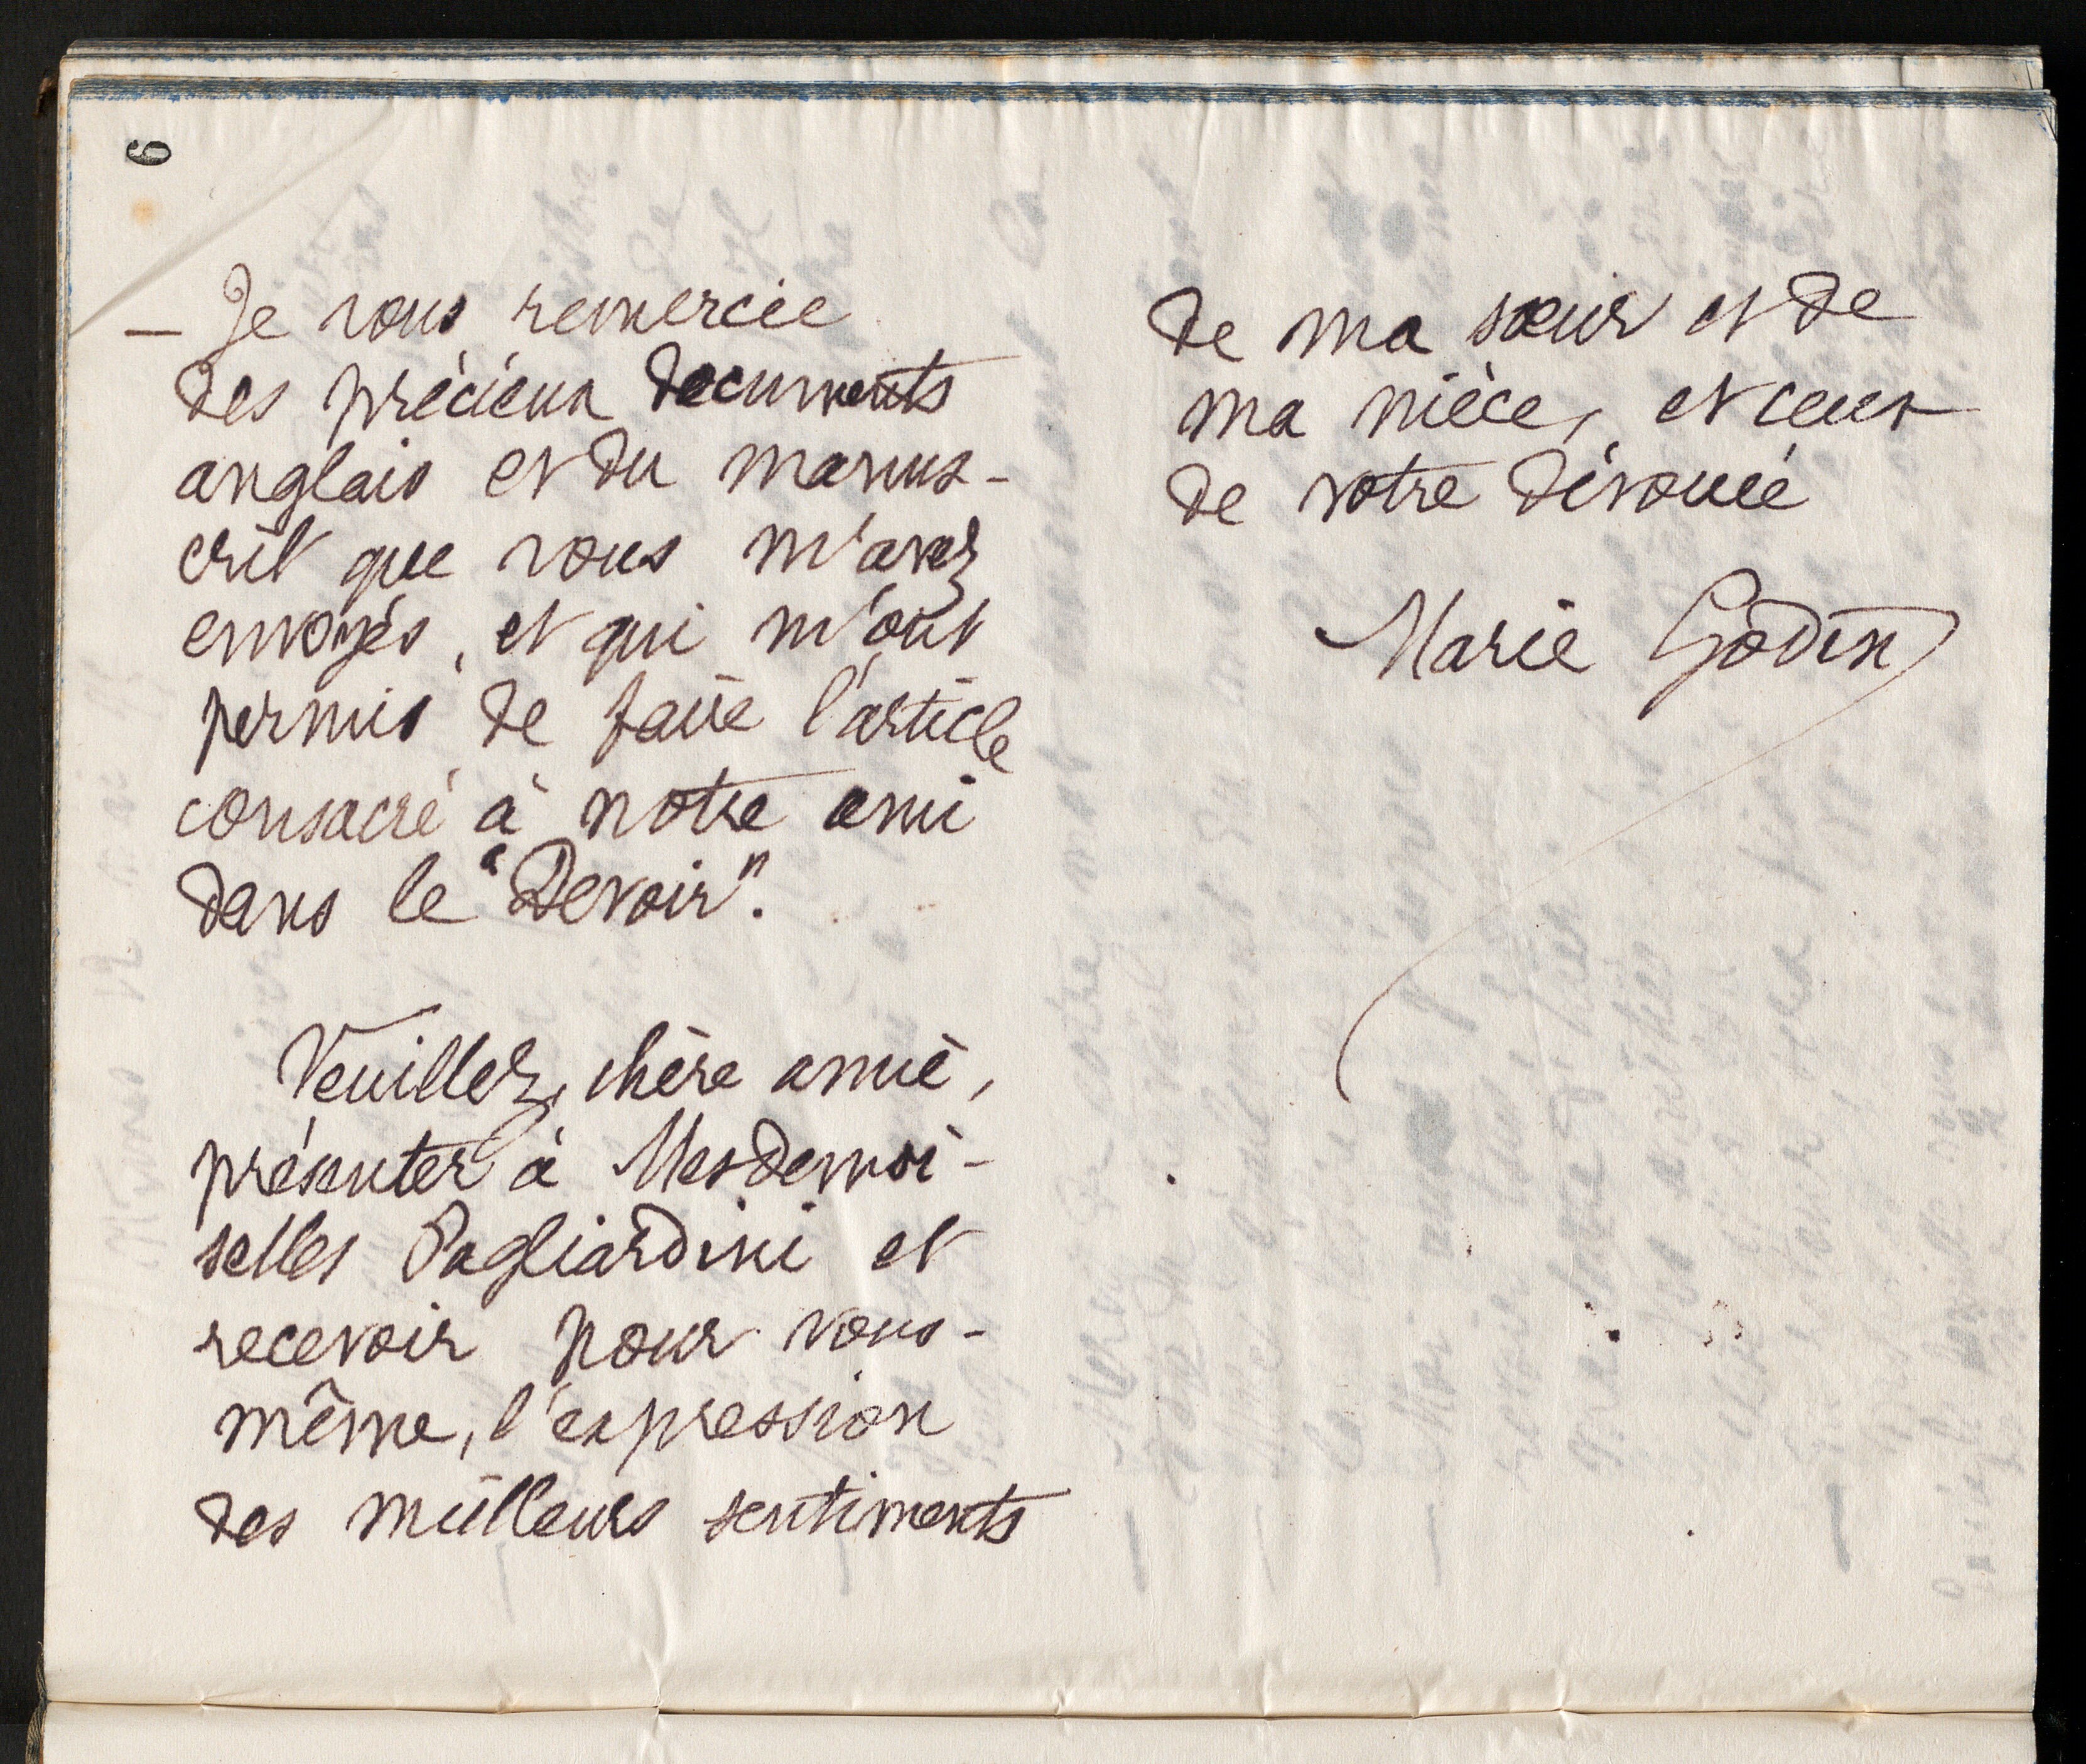 6
— Je vous remercie
des précieux documents
anglais et du manus-
crit que vous m'avez
envoyés, et qui m'ont
permis de faire l'article
consacré à notre ami
dans le "Devoir".
Veuillez, chère amie,
présenter à Mesdemoi-
selles Pagliardini et
recevoir pour vous-
même, l'expression
des meilleurs sentiments
de ma sœur et de
ma nièce, et ceux
de votre dévouée
Marie Godin